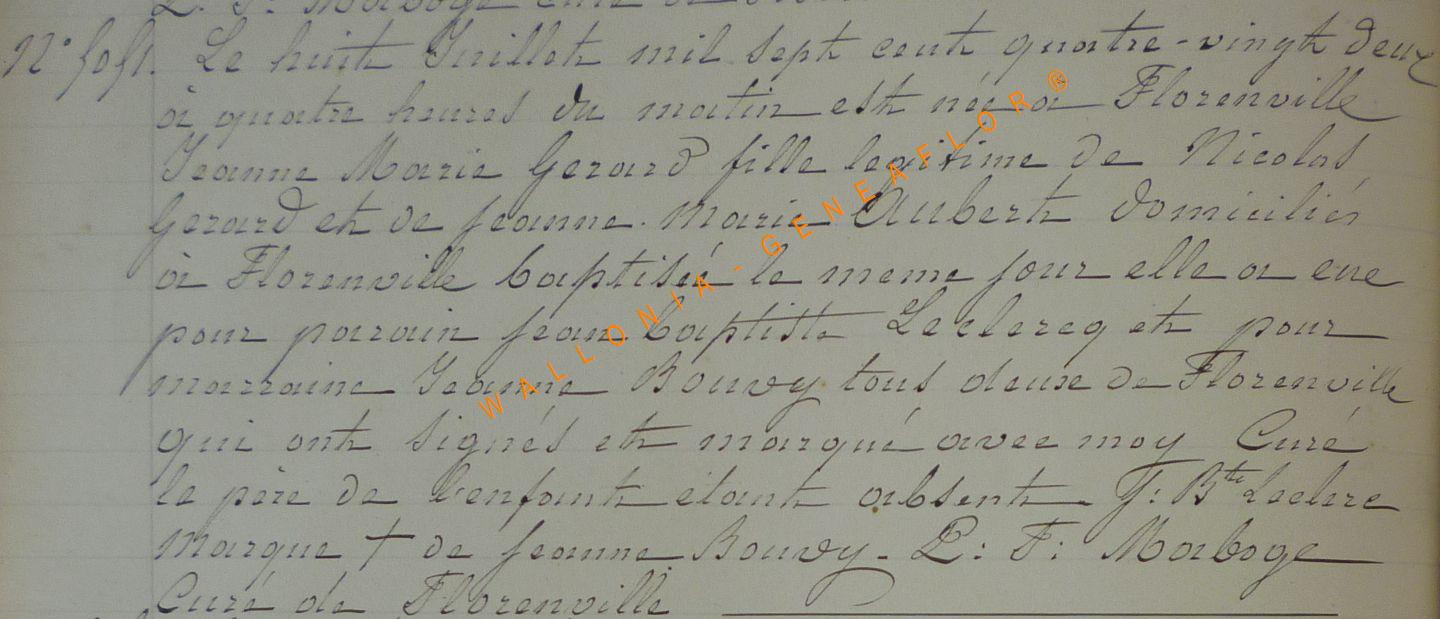 L. F. Maboge curé de
N° 5051. Le huit Juillet mil sept cent quatre-vingt deux
à quatre heures du matin est née a Florenville
Jeanne Marie Gerard fille legitime de Nicolas
Gerard et de jeanne. Marie Aubert domiciliés
à Florenville baptiséé le meme jour elle a eue
pour parrain jean baptiste Leclercq et pour
marraine Jeanne Bouvy tous deux de Florenville
qui ont signés et marqué avec moy Curé
le père de l'enfant étant absent. J: Bte Leclerc
Marque + de jeanne Bouvy. L: F: Maboge
Curé de Florenville
WALLONIA-GENEAFLOR®